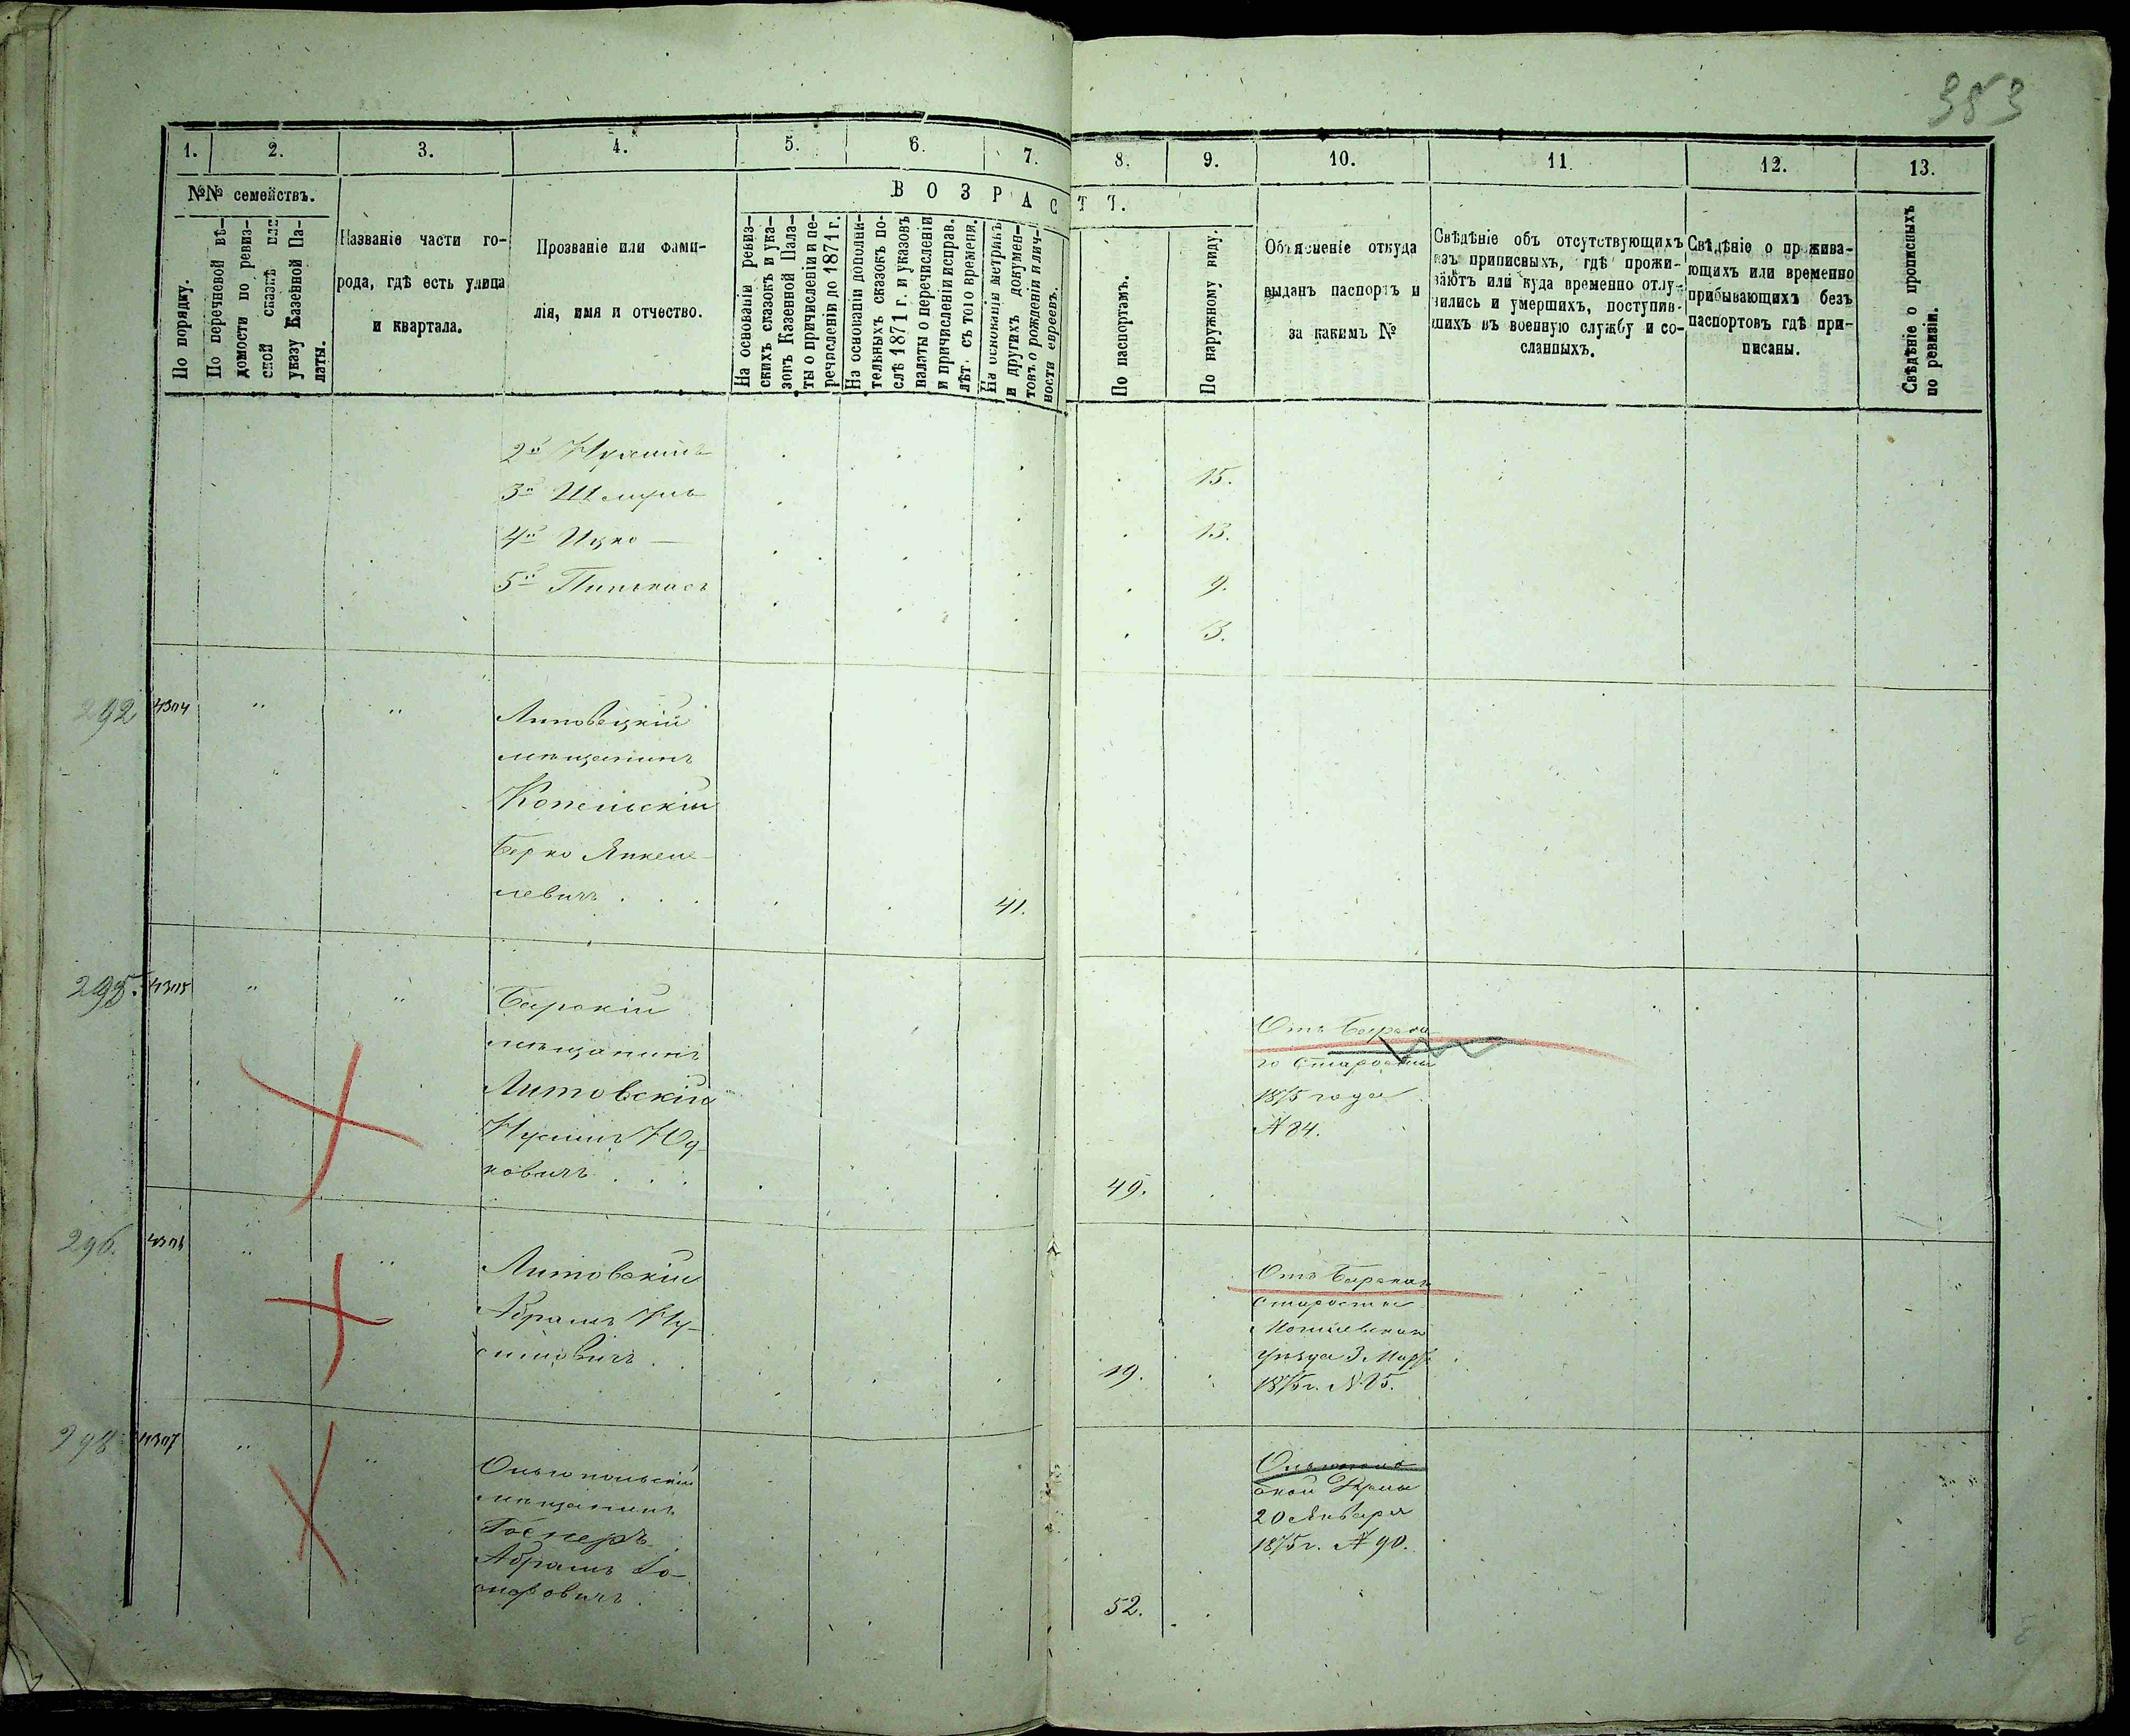 383
1. 2. 3. 4. 5. 6. 7. 8. 9. 10. 11. 12. 13.
№№ семействъ.
По порядку.
По перечневой вѣ-
домости по ревиз-
ской сказкѣ или
указу Казенной Па-
латы.
Названіе части го-
рода, гдѣ есть улица
и квартала.
Прозваніе или фами-
лія, имя и отчество.
ВОЗРАСТЪ.
На основаніи ревиз-
скихъ сказокъ и ука-
зовъ Казенной Пала-
ты о причисленіи и пе-
речисленіи до 1871 г.
На основаніи дополни-
тельныхъ сказокъ по-
слѣ 1871 г. и указовъ
палаты о перечисленіи
и причисленіи исправ.
лѣт. съ того времени.
На основаніи метрикъ
и другихъ докумен-
товъ о рожденіи и лич-
ности евреевъ.
По паспортамъ.
По наружному виду.
Объясненіе откуда
выданъ паспортъ и
за какимъ №
Свѣдѣніе объ отсутствующихъ
изъ приписныхъ, гдѣ прожи-
ваютъ или куда временно отлу-
чились и умершихъ, поступив-
шихъ въ военную службу и со-
сланныхъ.
Свѣдѣніе о прожива-
ющихъ или временно
прибывающихъ безъ
паспортовъ гдѣ при-
писаны.
Свѣдѣніе о прописныхъ
по ревизіи.
2й Нухимъ 15.
3й Шмуль 13.
4й Ицко 9.
5й Пинькасъ 3.
292 4304 " "
Липовецкій
мѣщанинъ
Копельскій
Берко Янкеле-
левичъ . . . 41.
295. 4305 " "
Барскій
мѣщанинъ
Литовскій
Нусинъ Юд-
ковичъ . . . 49.
Отъ Барска-
го Старосты
1875 года
№ 84.
296. 4306 " "
Литовскій
Абрамъ Ну-
синовичъ . . 19.
Отъ Барскаго
Старосты
Могилевскаго
уѣзда 3 Мар.
1875 г. №
298 4307 " "
Ольгопольскій
мѣщанинъ
Госнеръ
Абрамъ
52.
Ольгополь
ской Думы
20 Января
1875 г. № 90.